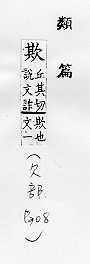 類篇
欺丘其切欺也
說文詐文一
(欠部
P.908)